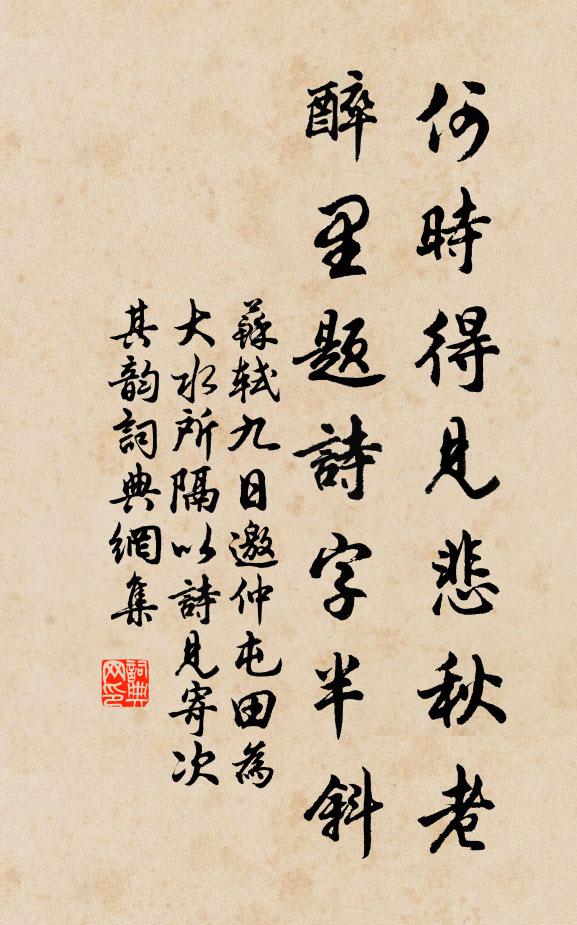 何時得見悲秋老
醉里題詩字半斜
蘇軾九日邀仲屯田為
大水所隔以詩見寄次
其韵詞典網集
詞典网印